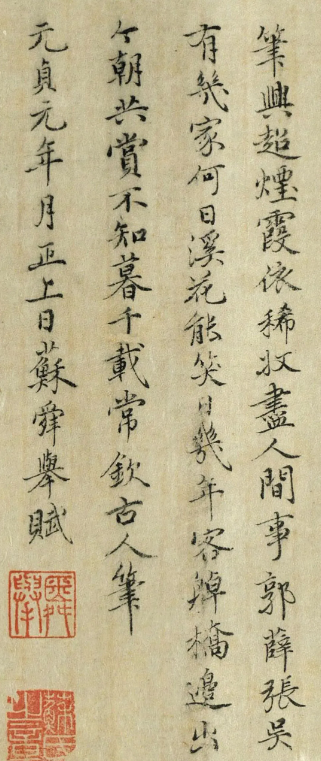 筆興超煙霞依稀收盡人間事郭薛張吳
有幾家何日溪花能笑日幾年客棹橋邊出
今朝共賞不知暮千載常欽古人筆
元貞元年月正上日蘇舜舉賦
舜舉